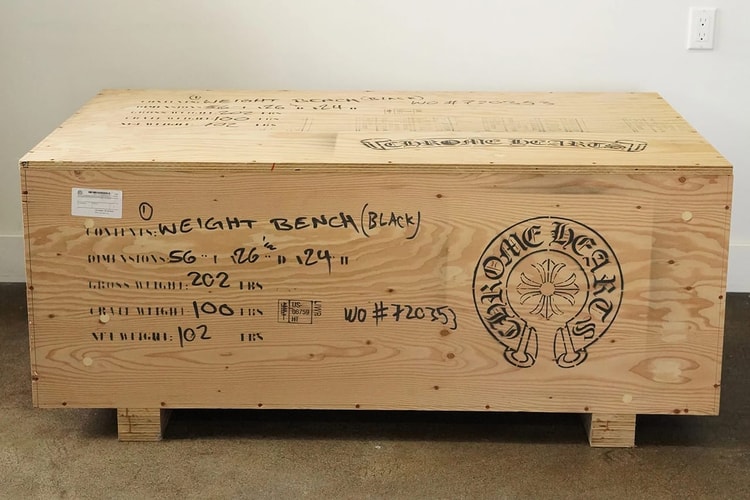 ① CONTENTS: WEIGHT BENCH (BLACK) WO #720353
DIMENSIONS: 56 " L 26 " D 24 " H
GROSS WEIGHT: 202 LBS
CRATE WEIGHT: 100 LBS
NET WEIGHT: 102 LBS
CHROME HEARTS
① CONTENTS: WEIGHT BENCH (BLACK)
DIMENSIONS: 56 " L 26 in " D 24 " H
GROSS WEIGHT: 202 LBS
CRATE WEIGHT: 100 LBS
NET WEIGHT: 102 LBS
WO #720353
CHROME HEARTS